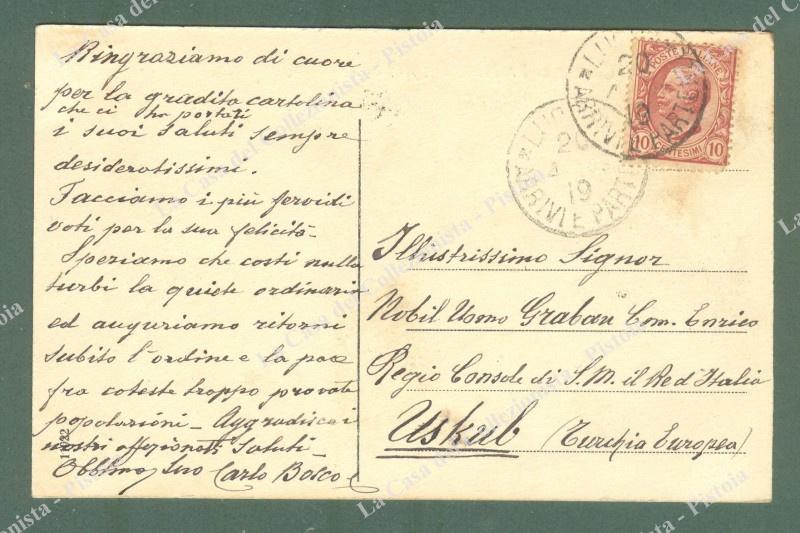 Ringraziamo di cuore
per la gradita cartolina
che ci ha portati
i suoi saluti sempre
desideratissimi.
Facciamo i più fervidi
voti per la sua felicità.
Speriamo che costì nulla
turbi la quiete ordinaria
ed auguriamo ritorni
subito l'ordine e la pace
fra coteste troppo provate
popolazioni - Aggradisca i
nostri affezionati saluti -
Obblmo suo Carlo Bosco
POSTE ITALIANE
10 CENTESIMI 10
LUC
20
19
ARRIVI E PARTENZE
LUC
20
19
ARRIVI E PART
Illustrissimo Signor
Nobil Uomo Grabau Com. Enrico
Regio Console di S. M. il Re d'Italia
Uskub (Turchia Europea)
La Casa del Collezionista - Pistoia